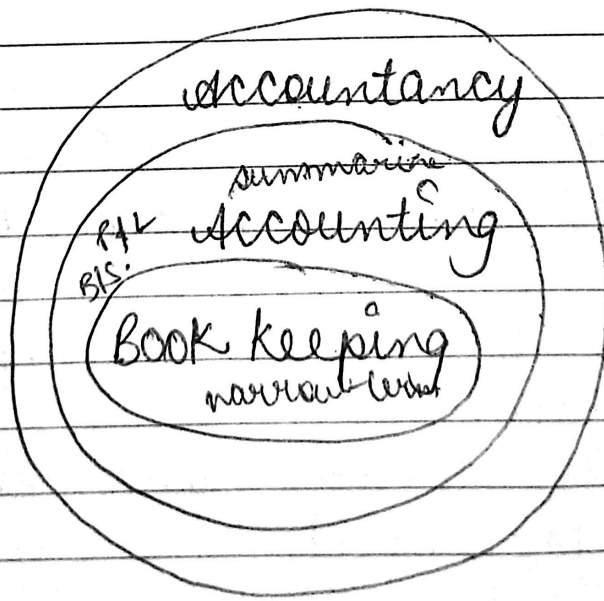 Accountancy
summarize
Accounting
P&L
B/S.
Book keeping
narrow